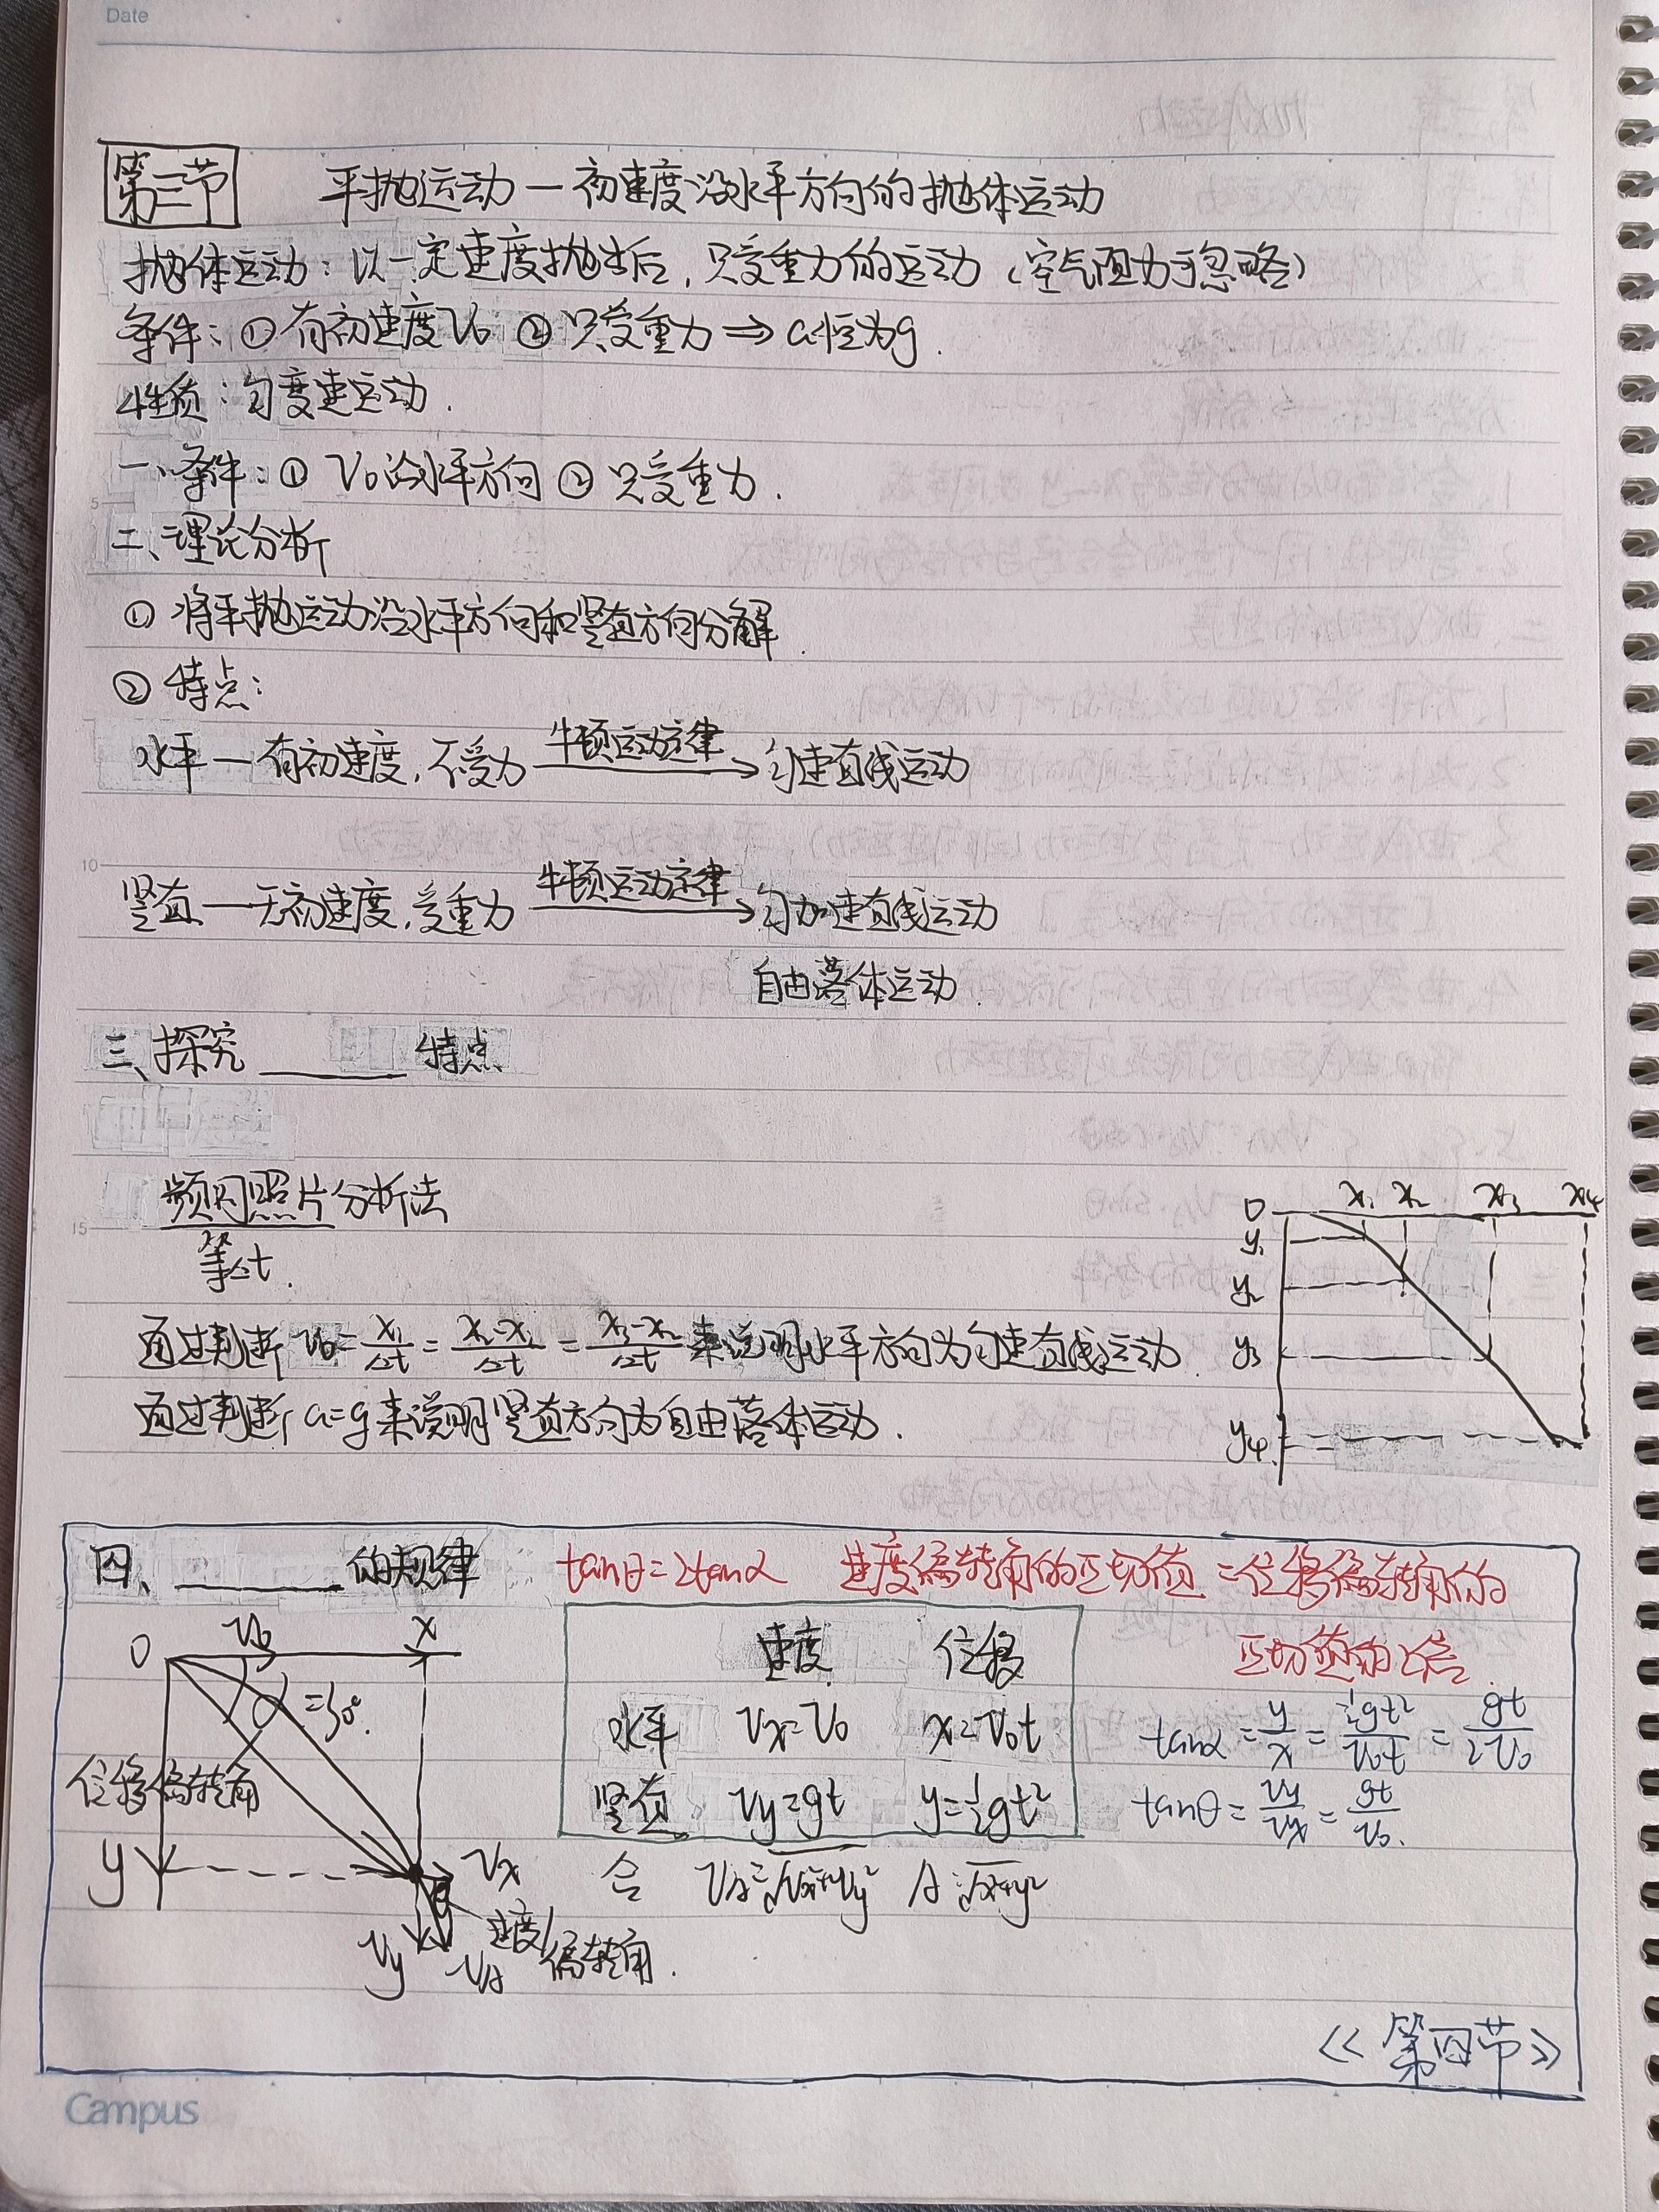 Date
第三节 平抛运动—初速度沿水平方向的抛体运动
抛体运动：以一定速度抛出后，只受重力的运动（空气阻力可忽略）
条件：① 有初速度V₀ ② 只受重力 ⇒ a恒为g.
性质：匀变速运动.
一、条件：① V₀沿水平方向 ② 只受重力.
5
二、理论分析
① 将平抛运动沿水平方向和竖直方向分解.
② 特点：
牛顿运动定律
水平—有初速度,不受力 → 匀速直线运动
10
牛顿运动定律
竖直—无初速度,受重力 → 匀加速直线运动
自由落体运动.
三、探究 ______ 特点
频闪照片分析法
15
等Δt.
0 x₁ x₂ x₃ x₄
y₁
y₂
y₃
y₄
通过判断 v₀=x₁/Δt=(x₂-x₁)/Δt=(x₃-x₂)/Δt 来说明水平方向为匀速直线运动.
通过判断 a=g 来说明竖直方向为自由落体运动.
四、______的规律 tanθ=2tanα 速度偏转角的正切值=位移偏转角的
正切值的2倍.
0 V₀ x
α=30°.
位移偏转角
y
Vx
Vy
速度偏转角.
速度 位移
水平 Vx=V₀ x=V₀t
竖直 Vy=gt y=½gt²
合 VA=√(Vx²+Vy²) A=√(x²+y²)
VA
tanα=y/x=½gt²/V₀t=gt/2V₀
tanθ=Vy/Vx=gt/V₀.
<<第四节>>
Campus